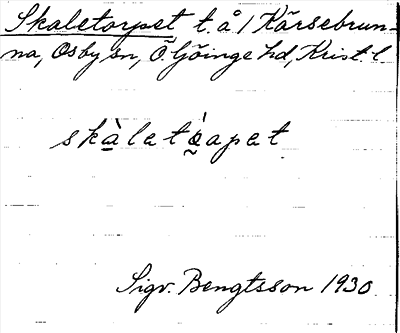 Skaletorpet t. å 1 Kärsebrun-
na, Osby sn, Ö. Göinge hd, Krist. l.
skàletǫ́apet
Sigv. Bengtsson 1930